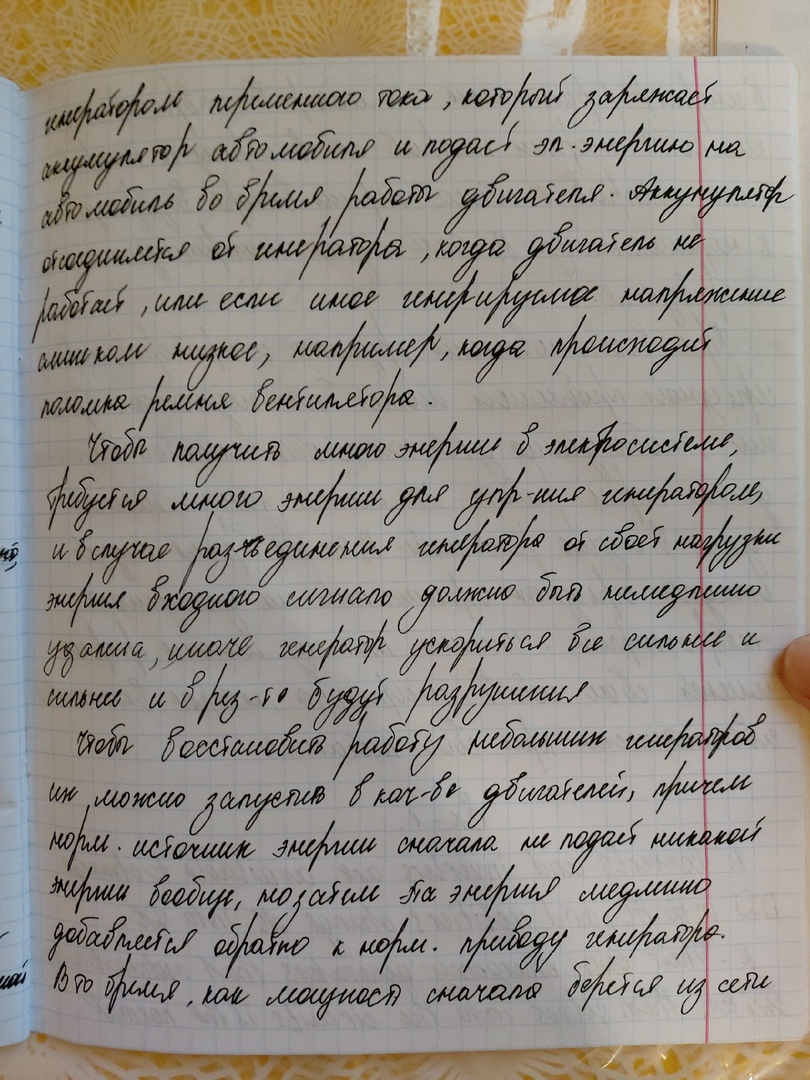 генератором переменного тока, который заряжает
аккумулятор автомобиля и подаёт эл. энергию на
автомобиль во время работы двигателя. Аккумулятор
отсоединяется от генератора, когда двигатель не
работает, или если иное генерируемое напряжение
слишком низкое, например, когда происходит
поломка ремня вентилятора.
Чтобы получить много энергии в электросистеме,
требуется много энергии для упр-ния генератором,
и в случае разъединения генератора от своей нагрузки
энергия входного сигнала должно быть немедленно
удалена, иначе генератор ускориться все сильнее и
сильнее и в рез-те будут разрушения
Чтобы восстановить работу небольших генераторов
их можно запустить в кач-ве двигателей, причем
норм. источник энергии сначала не подает никакой
энергии вообще, но затем эта энергия медленно
добавляется обратно к норм. приводу генератора.
В то время, как мощность сначала берется из сети